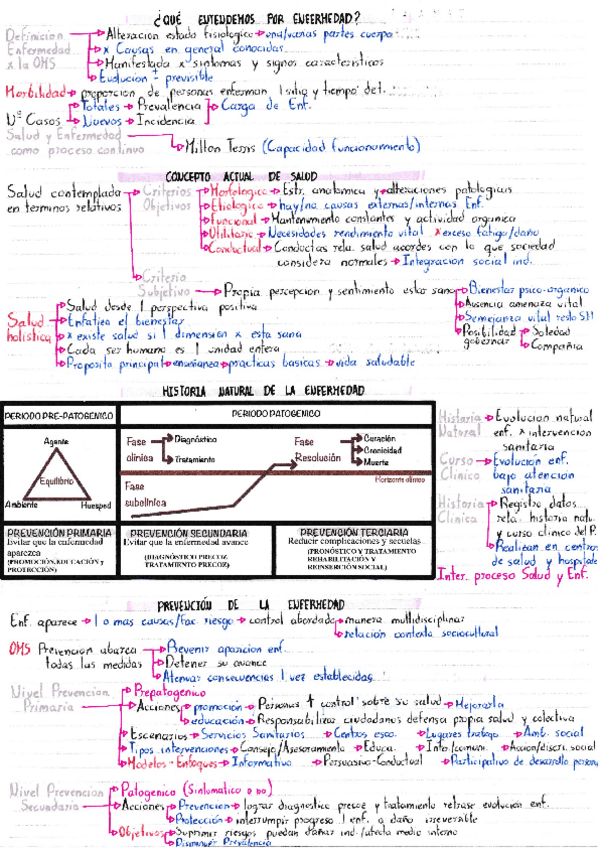 ¿QUÉ ENTENDEMOS POR ENFERMEDAD?
Definicion Enfermedad x la OMS
Alteracion estado fisiologico → una/varias partes cuerpo
x Causas en general conocidas
Manifestada x sintomas y signos caracteristicos
Evolucion ± previsible
Morbilidad → proporcion de personas enferman 1 sitio y tiempo det.
Nº Casos
Totales → Prevalencia
Nuevos → Incidencia
Carga de Enf.
Salud y Enfermedad como proceso continuo
Milton Terris (Capacidad funcionamiento)
CONCEPTO ACTUAL DE SALUD
Salud contemplada en terminos relativos
Criterios Objetivos
Morfologico → Estr. anatomica y alteraciones patologicas
Etiologico → hay/no causas externas/internas Enf.
Funcional → Mantenimento constantes y actividad organica
Utilitario → Necesidades rendimiento vital x exceso fatiga/daño
Conductual → Conductas rela. salud acordes con lo que sociedad
considera normales → Integracion social ind.
Criterio Subjetivo
Propia percepcion y sentimiento estar sano
Bienestar psico-organico
Ausencia amenaza vital
Semejanza vital resto SH
Posibilidad gobernar
Soledad
Compañia
Salud holistica
Salud desde 1 perspectiva positiva
Enfatiza el bienestar
x existe salud si 1 dimension x esta sana
Cada ser humano es 1 unidad entera
Proposito principal → enseñanza → practicas basicas → vida saludable
HISTORIA NATURAL DE LA ENFERMEDAD
PERIODO PRE-PATOGENICO
PERIODO PATOGENICO
Agente
Equilibrio
Ambiente
Huesped
Fase clinica
Diagnóstico
Tratamiento
Fase Resolución
Curación
Cronicidad
Muerte
Horizonte clinico
Fase subclinica
PREVENCIÓN PRIMARIA
Evitar que la enfermedad
aparezca
(PROMOCIÓN, EDUCACIÓN y
PROTECCIÓN)
PREVENCIÓN SECUNDARIA
Evitar que la enfermedad avance
(DIAGNÓSTICO PRECOZ
TRATAMIENTO PRECOZ)
PREVENCIÓN TERCIARIA
Reducir complicaciones y secuelas
(PRONÓSTICO Y TRATAMIENTO
REHABILITACIÓN Y
REINSERCIÓN SOCIAL)
Historia Natural
Evolucion natural
enf. x intervencion
sanitaria
Curso Clinico
Evolución enf.
bajo atencion
sanitaria
Historia Clinica
Registro datos
rela. historia natu.
y curso clinico del P.
Realizan en centros
de salud y hospitales
Inter. proceso Salud y Enf.
PREVENCIÓN DE LA ENFERMEDAD
Enf. aparece → 1 o mas causas/fac. riesgo → control abordado
manera multidisciplinar
relación contexto sociocultural
OMS Prevencion abarca todas las medidas
Prevenir aparicion enf.
Detener su avance
Atenuar consecuencias 1 vez establecidas
Nivel Prevencion Primaria
Prepatogenico
Acciones
promoción → Personas ↑ control sobre su salud → Mejorarla
educación → Responsabilizar ciudadanos defensa propia salud y colectiva
Escenarios → Servicios Sanitarios → Centros esco. → Lugares trabajo → Amb. social
Tipos intervenciones → Consejo/Asesoramiento → Educa. → Info/comuni. → Accion/discri. social
Modelos-Enfoques → Informativo → Persuasivo-Conductual → Participativo de desarrollo personal
Nivel Prevencion Secundaria
Patogenico (Sintomatico o no)
Acciones
Prevencion → lograr diagnostico precoz y tratamiento retrase evolucion enf.
Protección → interrumpir progreso 1 enf. a daño irreversible
Objetivos
Suprimir riesgos puedan dañar ind./afecta medio interno
Disminuir Prevalencia